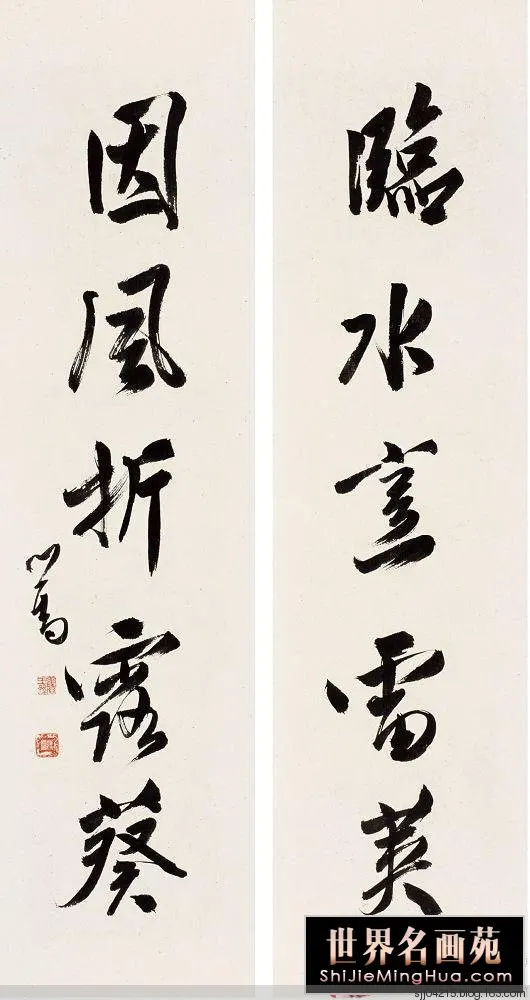 臨水烹雷莢
因風折露葵
心畬
世界名画苑
ShiJieMingHua.com
sjj04215.blog.163.com